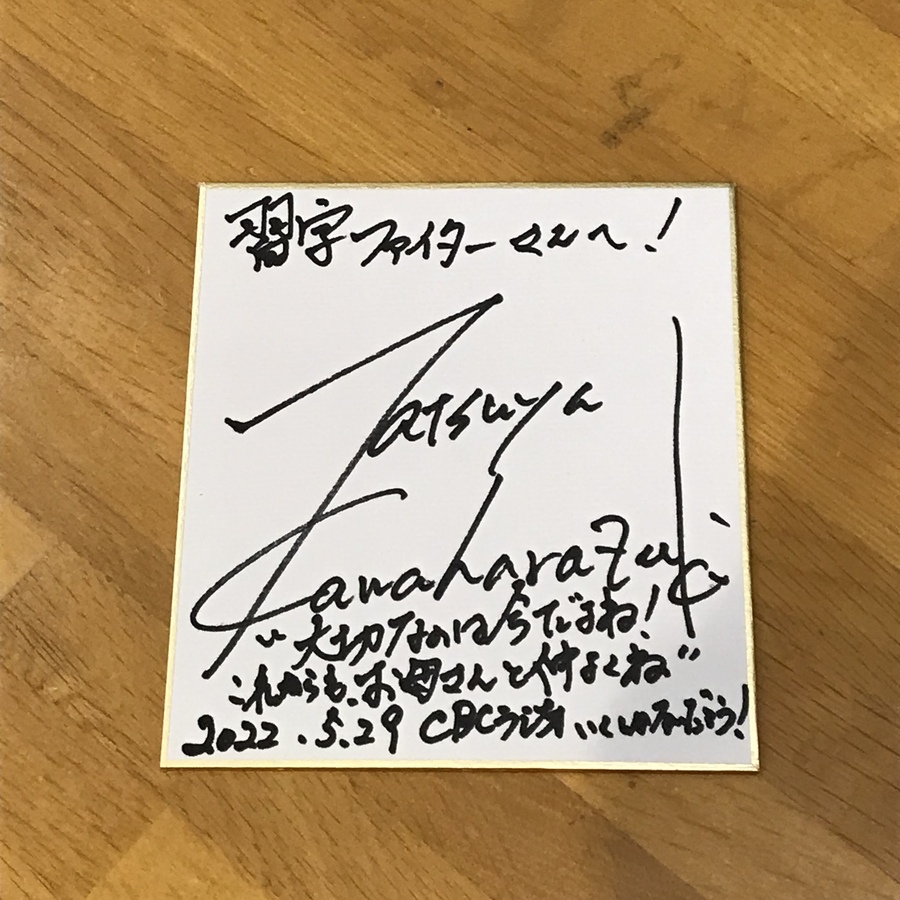 習字ファイターくんへ!
Tatsuya
Kawaharazuki
"大切なのは今だよね!
これからも、お母さんと仲よくね"
2022.5.29 CBCラジオ